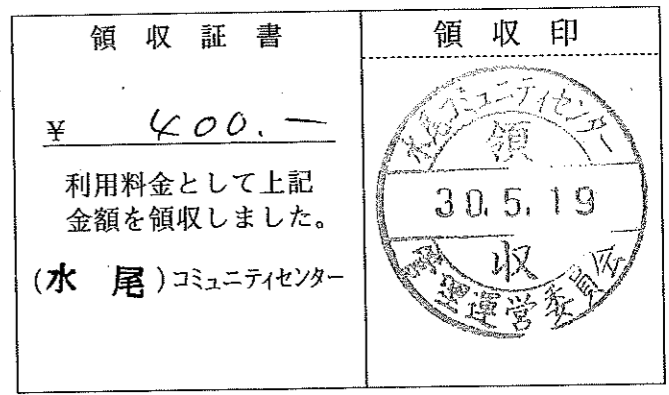 領収証書
¥ 400.-
利用料金として上記
金額を領収しました。
(水尾)コミュニティセンター
領収印
水尾コミュニティセンター
領
30.5.19
収
管理運営委員会